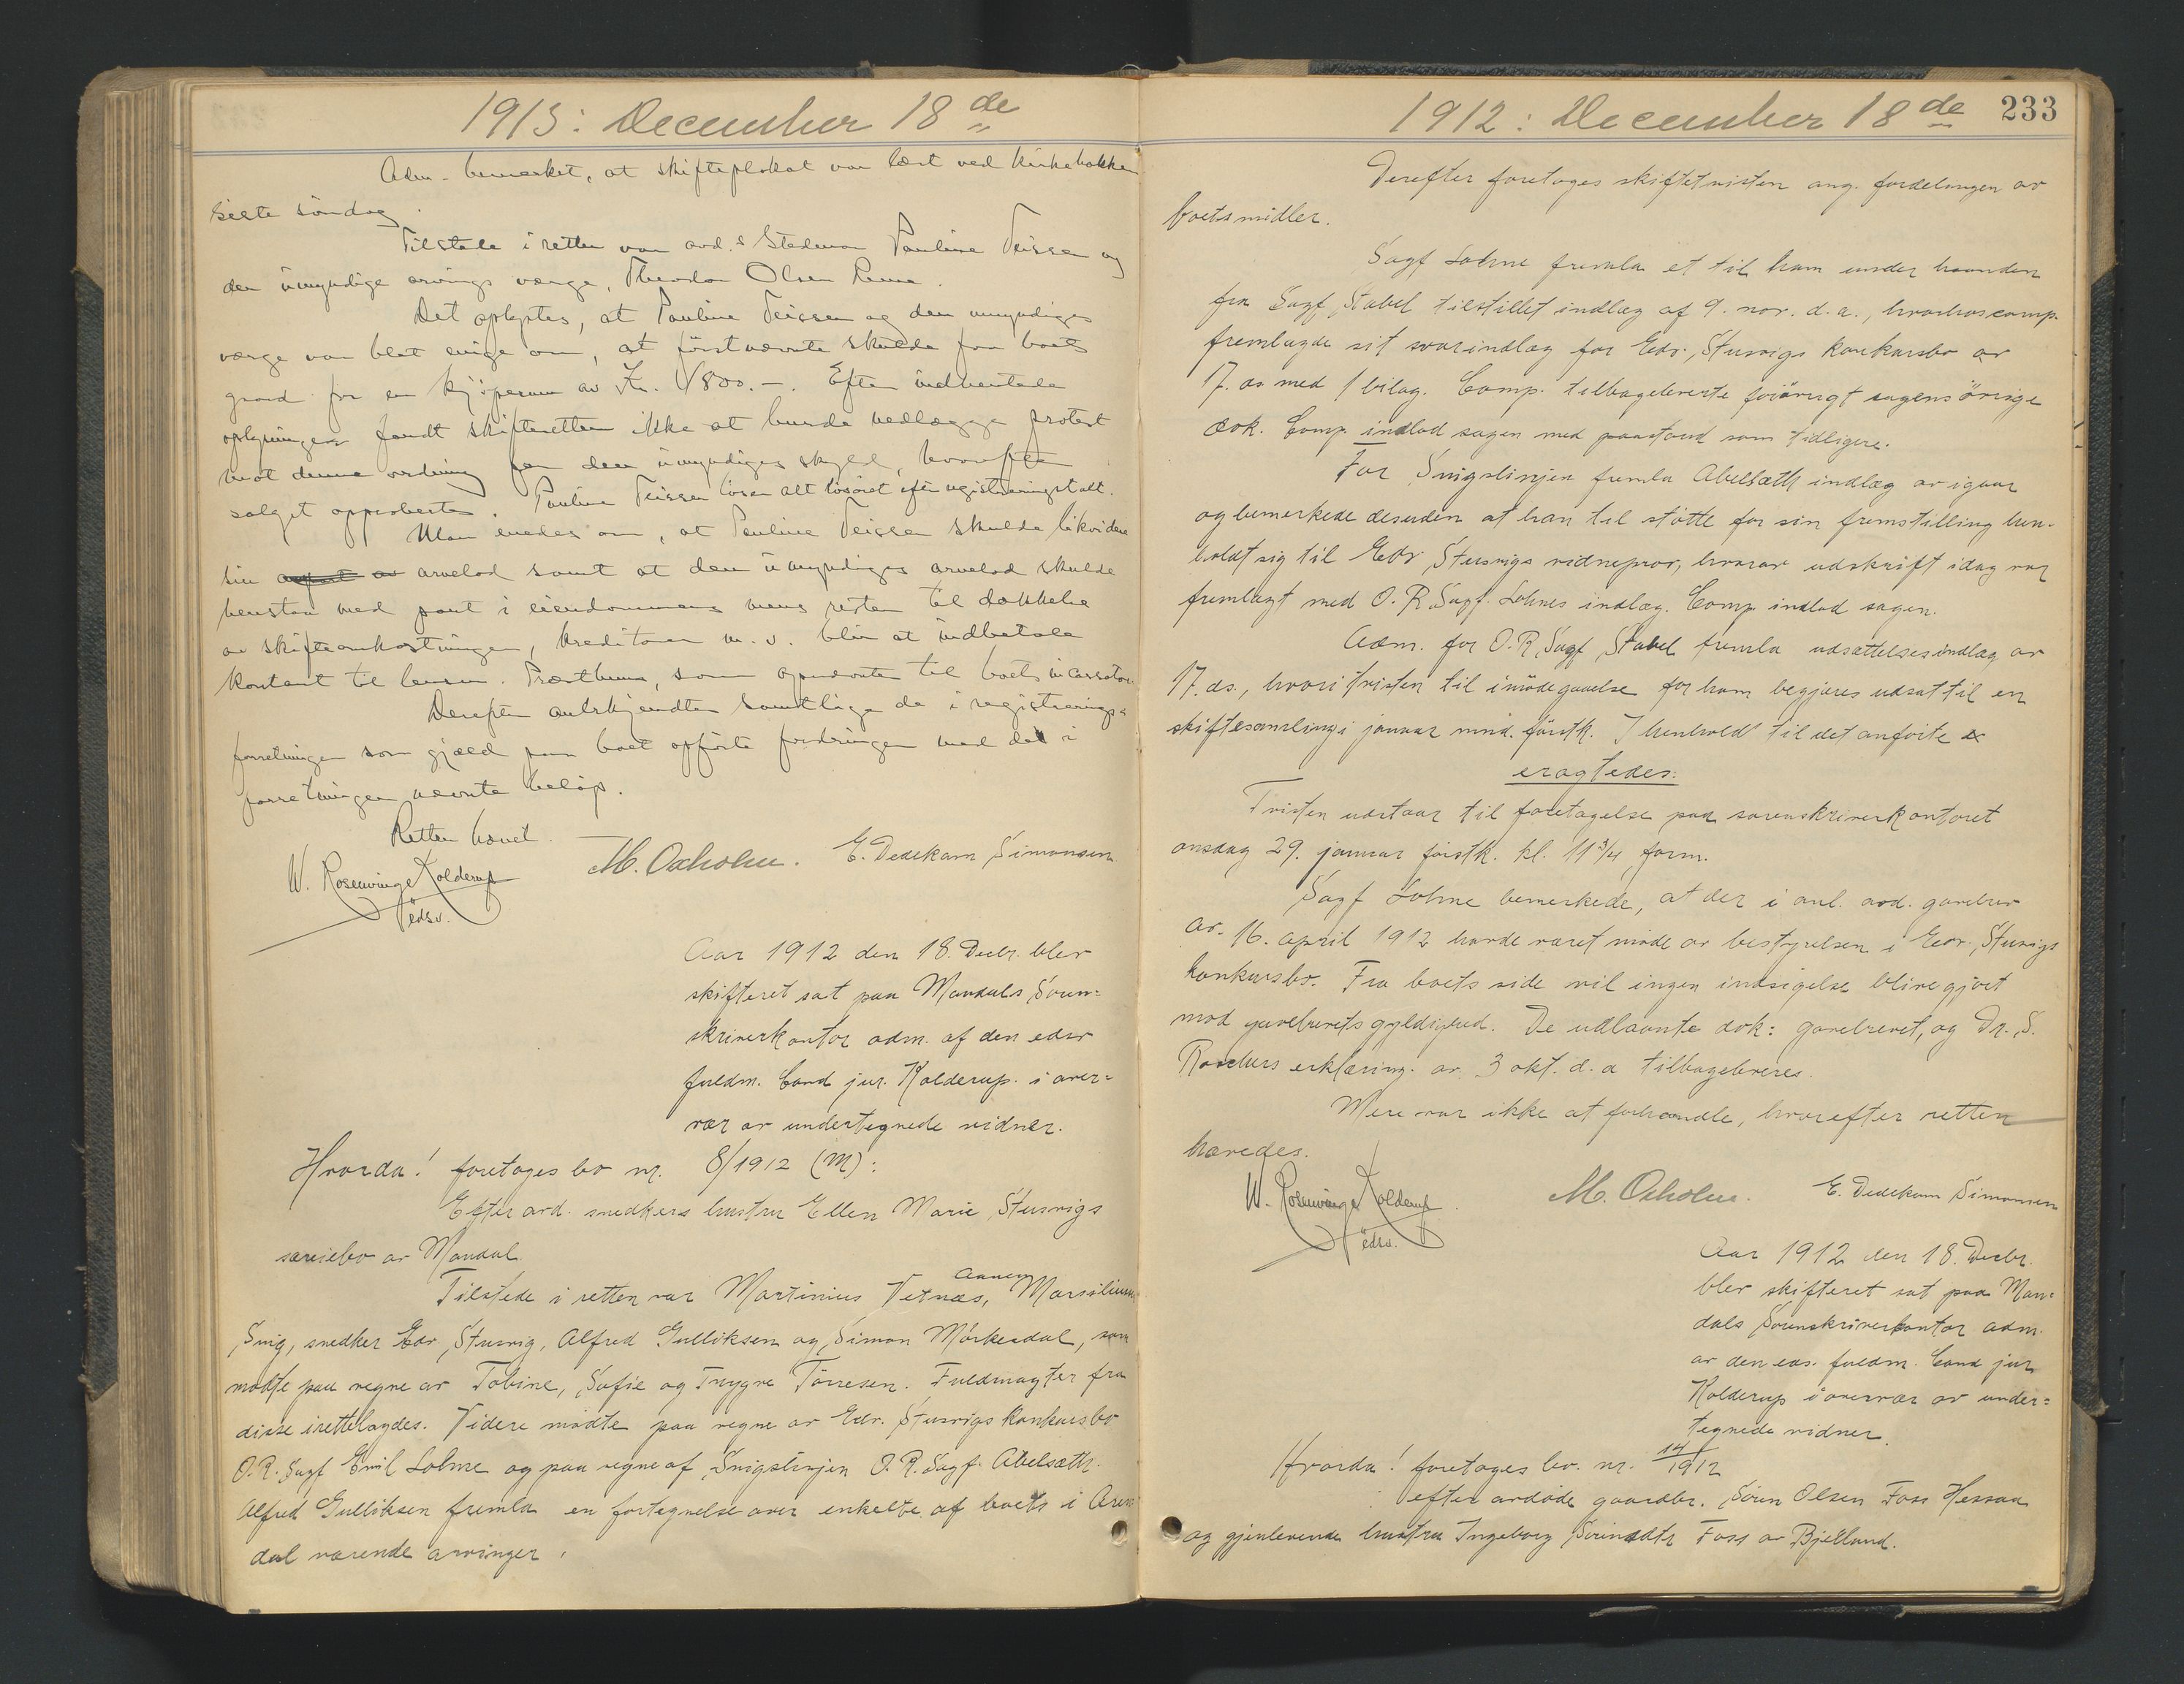 1913: December 18de
Adm. bemerket, at skifteplakat var læst ved kirkebakken
siste søndag.
Tilstede i retten var avd.s Stedmor Pauline Teissen og
den umyndige arvings værge, Theodor Olsen
Det oplystes, at Pauline Teissen og den umyndiges
værge var blet enige om, at førstnævnte skulde faa boets
gaard for en kjøpesum av Kr. 1800.-. Efter indhentede
oplysninger fandt skifteretten ikke at burde nedlægge protest
mot denne ordning for den umyndiges skyld, hvorefter
salget approbertes. Pauline Teissen løser alt løsøret efter registreringstakt.
Man enedes om, at Pauline Teissen skulde likvidere
sin arvelod samt at den umyndiges arvelod skulde
henstaa med pant i eiendommen mens resten til dækkelse
av skifteomkostninger, kreditorer m.v. blir at indbetale
kontant til lensm. som opnævnte til boets incassator.
Derefter anerkjendtes samtlige de i registrerings-
forretningen som gjæld paa boet opførte fordringer med det i
forretningen nævnte beløp.
Retten hævet.
W. Rosenvinge Kolderup
edsv.
M. Oxholm. E. Dedekam Simonsen
Aar 1912 den 18. Decbr. blev
skifteret sat paa Mandals Soren=
skriverkontor adm. af den edsv
fuldm. Cand jur. Kolderup. i over=
vær av undertegnede vidner.
Hvorda! foretoges bo nr. 8/1912 (M):
Efter avd. snedkers hustru Ellen Marie Stusvigs
særeiebo av Mandal.
Tilstede i retten var Martinius Vetnæs, Marsilius
Svig, snedker Edv. Stusvig, Alfred Gulliksen og Simon Mörkesdal, som
mødte paa vegne av Tobine, Sofie og Trygve Törresen. Fuldmagter fra
disse irettelagdes. Videre mødte paa vegne av Edv. Stusvigs konkursbo
O.R. Sagf Emil Lohne og paa vegne af Snigslinjen O.R. Sagf. Abelsæth.
Alfred Gulliksen fremla en fortegnelse over enkelte af boets i Aren
dal værende arvinger.
1912: December 18de 233
Derefter foretoges skiftetvisten ang. fordelingen av
boets midler.
Sagf Lohne fremla et til ham under haanden
fra Sagf. Stabel tilstillet indlæg af 9. nov. d.a., hvorhos comp.
fremlagde sit svarindlæg for Edv. Stusvigs konkursbo av
17. ds med 1 bilag. Comp. tilbageleverte forövrigt sagens övrige
dok. Comp. indlod sagen med paastand som tidligere.
For Snigslinjen fremla Abelsæth indlæg av igaar
og bemerkede desuden at han til stötte for sin fremstilling hen-
holdt sig til Edv Stusvigs vidneprov, hvorav udskrift idag var
fremlagt med O.R. Sagf. Lohnes indlæg. Comp indlod sagen.
Adm. for O.R. Sagf. Stabel fremla udsættelsesindlæg av
17. ds., hvori tvisten til imödegaaelse for ham begjæres udsat til en
skiftesamling i januar mnd. förstk. I henhold til det anförte
eragtedes:
Tvisten udstaar til foretagelse paa sorenskriverkontoret
onsdag 29. januar förstk. kl. 11 3/4 form.
Sagf Lohne bemerkede, at der i anl. avd. gavebrev
av. 16. april 1912 havde været möde av bestyrelsen i Edv. Stusvigs
konkursbo. Fra boets side vil ingen indsigelse blive gjort
mod gavebrevets gyldighed. De udlaante dok: gavebrevet, og Dr. S.
erklæring. av 3 okt. d.a tilbageleveres.
Mere var ikke at forhandle, hvorefter retten
hævedes.
W. Rosenvinge Kolderup
edsv.
M. Oxholm. E. Dedekam Simonsen
Aar 1912 den 18. Decbr.
blev skifteret sat paa Man=
dals Sorenskriverkontor adm.
av den eds. fuldm. Cand jur
Kolderup i overvær av under=
tegnede vidner.
Hvorda! foretoges bo. nr. 14/1912
efter avdøde gaardbr. Sören Olsen Foss Hessaa
og gjenlevende hustru Ingeborg Foss av Bjelland.